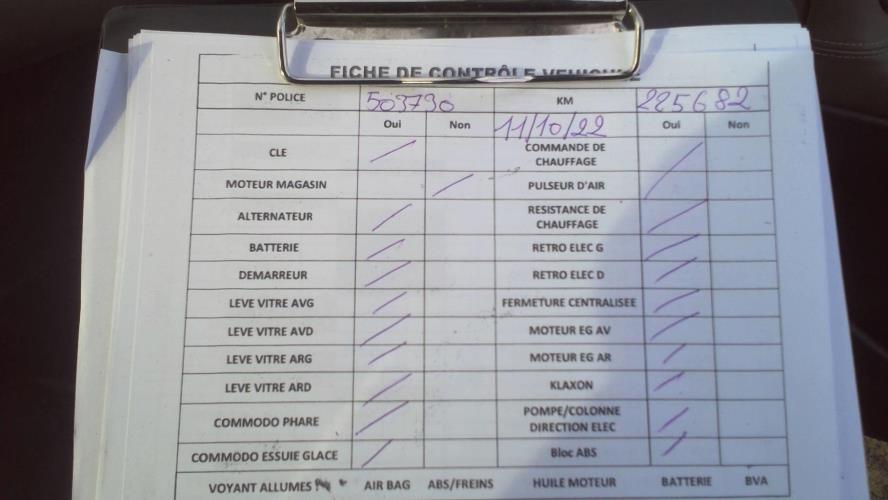 FICHE DE CONTRÔLE VEHICULE
N° POLICE 503790 KM 225682
Oui Non 11/10/22 Oui Non
CLE COMMANDE DE CHAUFFAGE
MOTEUR MAGASIN PULSEUR D'AIR
ALTERNATEUR RESISTANCE DE CHAUFFAGE
BATTERIE RETRO ELEC G
DEMARREUR RETRO ELEC D
LEVE VITRE AVG FERMETURE CENTRALISEE
LEVE VITRE AVD MOTEUR EG AV
LEVE VITRE ARG MOTEUR EG AR
LEVE VITRE ARD KLAXON
COMMODO PHARE POMPE/COLONNE DIRECTION ELEC
COMMODO ESSUIE GLACE Bloc ABS
VOYANT ALLUMES AIR BAG ABS/FREINS HUILE MOTEUR BATTERIE BVA